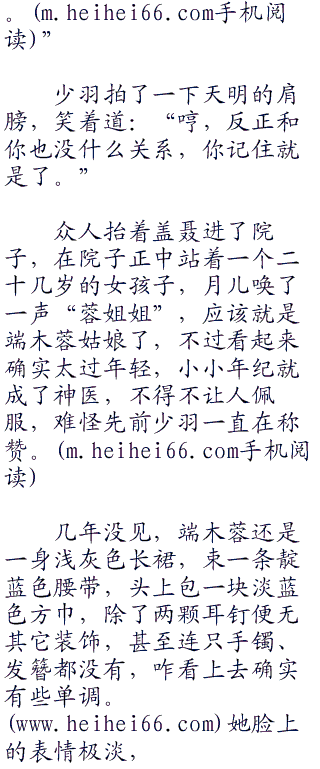 。(m.heihei66.com手机阅
读)”
少羽拍了一下天明的肩
膀，笑着道：“哼，反正和
你也没什么关系，你记住就
是了。”
众人抬着盖聂进了院
子，在院子正中站着一个二
十几岁的女孩子，月儿唤了
一声“蓉姐姐”，应该就是
端木蓉姑娘了，不过看起来
确实太过年轻，小小年纪就
成了神医，不得不让人佩
服，难怪先前少羽一直在称
赞。(m.heihei66.com手机阅
读)
几年没见，端木蓉还是
一身浅灰色长裙，束一条靛
蓝色腰带，头上包一块淡蓝
色方巾，除了两颗耳钉便无
其它装饰，甚至连只手镯、
发簪都没有，咋看上去确实
有些单调。
(www.heihei66.com)她脸上
的表情极淡，